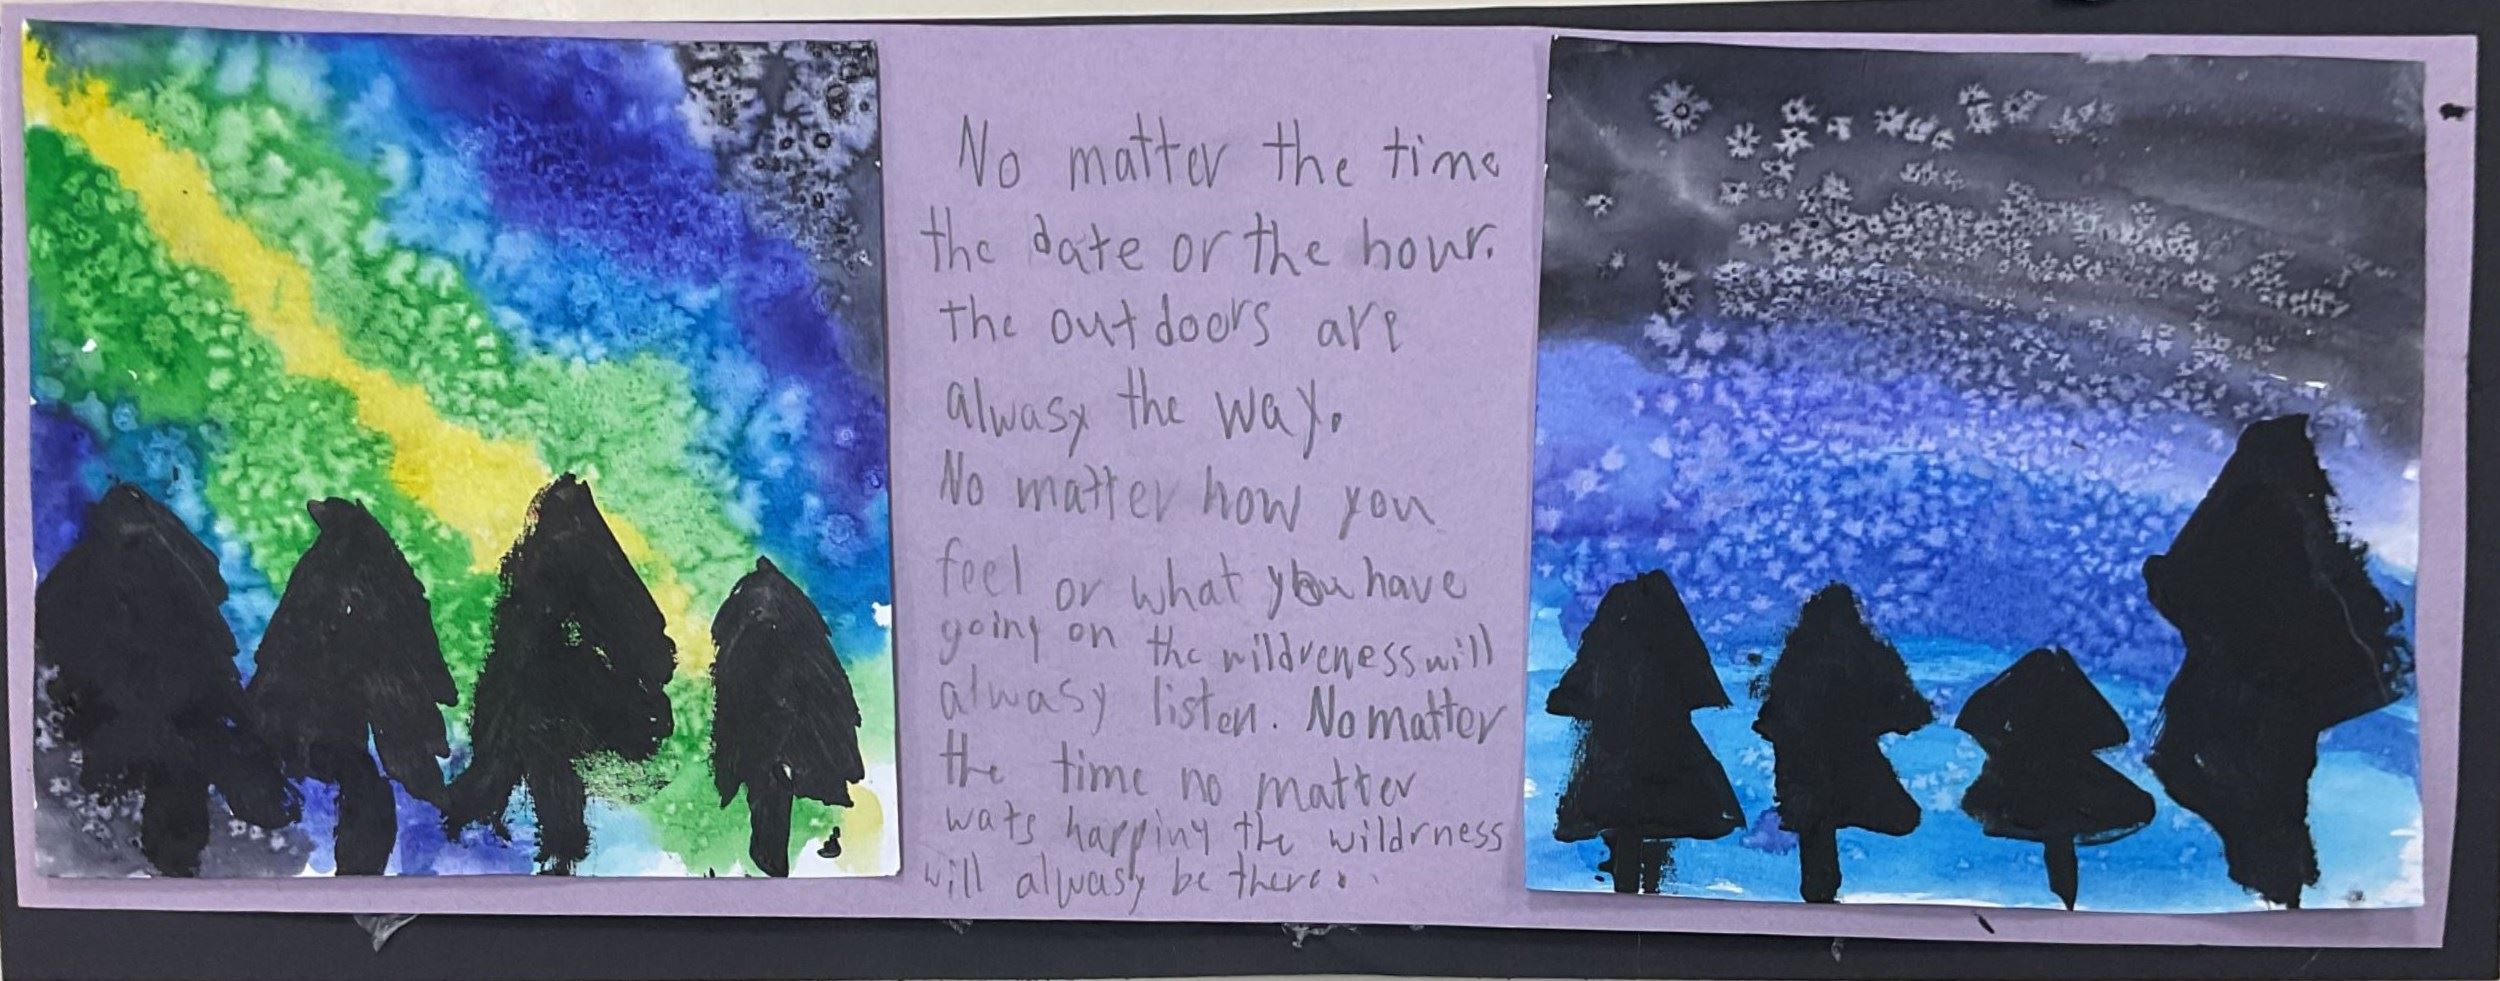 No matter the time
the date or the hour.
the outdoors are
alwasy the way.
No matter how you
feel or what you have
going on the wildreness will
alwasy listen. No matter
the time no matter
wats happiny the wildrness
will alwasy be there.